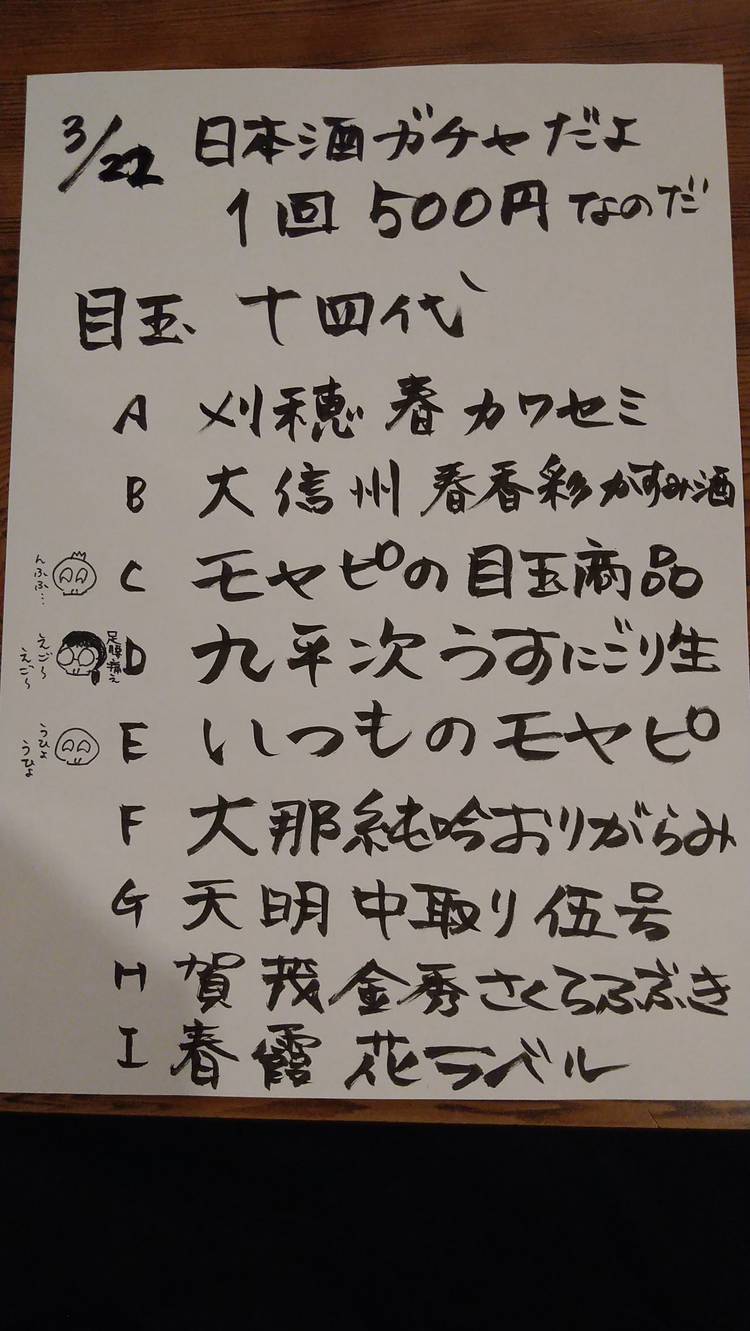 3/22 日本酒ガチャだよ
1回 500円なのだ
目玉 十四代
A 刈穂 春カワセミ
B 大信州 春香彩かすみ酒
んふふ… C モヤピの目玉商品
えご〜 えご〜 足腰痛え D 九平次うすにごり生
うひょ うひょ E いつものモヤピ
F 大那純吟おりがらみ
G 天明 中取り伍号
H 賀茂金秀さくらふぶき
I 春霞 花ラベル